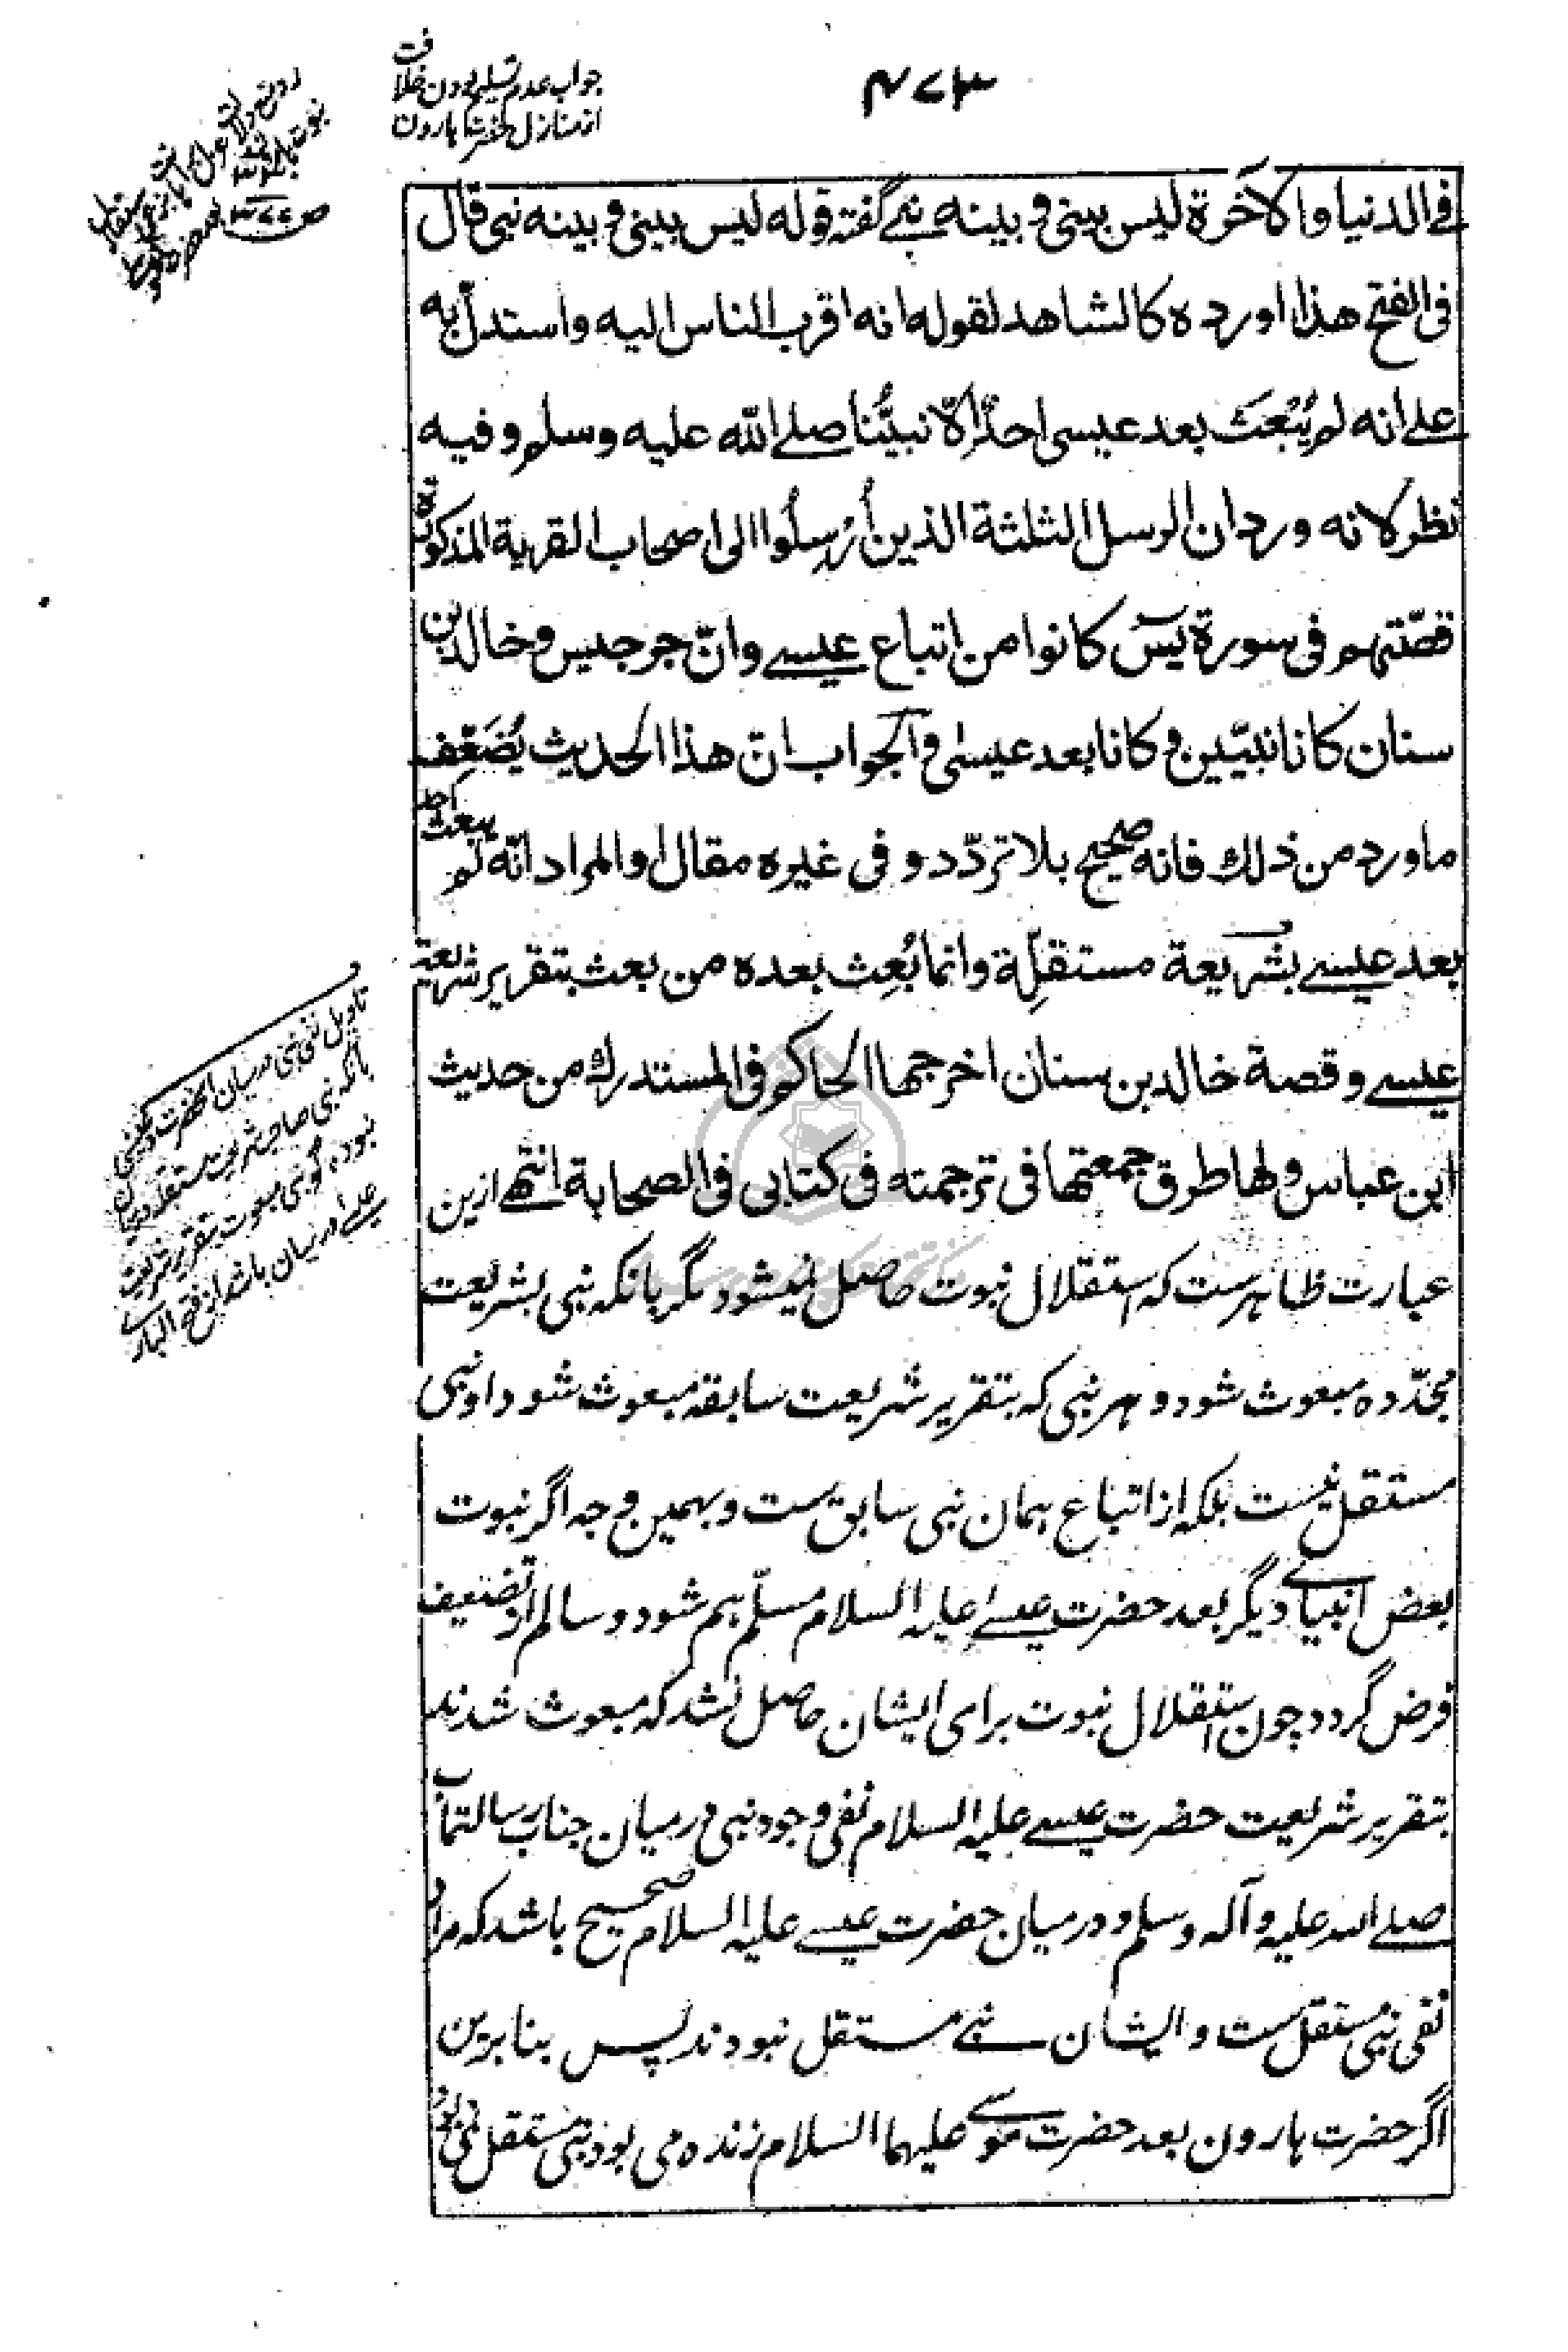 ۴۷۳
جواب عدم تسلیم بودن خلافت
از منازل حضرت هارون
فی الدنیا والآخرة لیس بینی و بینه نبی گفته قوله لیس بینی و بینه نبی قال
فی الفتح هذا اورده کالشاهد لقوله انه اقرب الناس الیه واستدلّ به
علی انه لم یُبْعَث بعد عیسی احدٌ الّا نبیُّنا صلی الله علیه وسلم وفیه
نظر لانه ورد ان الرسل الثلثة الذین اُرْسِلُوا الی اصحاب القریة المذکورة
قصّتهم فی سورة یٰسٓ کانوا من اتباع عیسی وانّ جرجیس وخالد بن
سنان کانا نبیّین وکانا بعد عیسیٰ والجواب انّ هذا الحدیث یُضَعِّف
ما ورد من ذلك فانه صحیح بلا تردّد وفی غیره مقال او المراد انّه لم یبعث احد
بعد عیسی بشریعة مستقلّة وانما بُعِث بعده من بعث بتقریر شریعة
عیسی وقصة خالد بن سنان اخرجها الحاکم فی المستدرك من حدیث
ابن عباس ولها طرق جمعتها فی ترجمته فی کتابی فی الصحابة انتهی ازین
عبارت ظاهرست که استقلال نبوت حاصل نمیشود مگر بانکه نبی بشریعت
مجدّده مبعوث شود و هر نبی که بتقریر شریعت سابقه مبعوث شود او نبی
مستقل نیست بلکه از اتباع همان نبی سابق ست و بهمین وجه اگر نبوت
بعض انبیای دیگر بعد حضرت عیسی علیه السلام مسلّم هم شود و سالم از تضعیف
فرض گردد چون استقلال نبوت برای ایشان حاصل نشد که مبعوث شدند
بتقریر شریعت حضرت عیسی علیه السلام نفی وجود نبی درمیان جناب رسالتمآب
صلی الله علیه وآله وسلم و درمیان حضرت عیسی علیه السلام صحیح باشد که مراد
نفی نبی مستقل ست و ایشان نبی مستقل نبودند پس بنابرین
اگر حضرت هارون بعد حضرت موسی علیهما السلام زنده می بود نبی مستقل نمی بود
تاویل نفی نبی درمیان آنحضرت و عیسی
بانکه نبی صاحب شریعت مستقله درمیان
نبوده گو نبی مبعوث بتقریر شریعت
عیسی درمیان باشد از فتح الباری